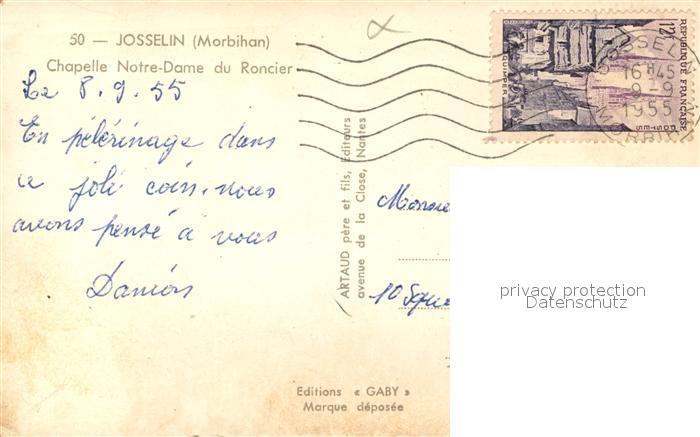 50 — JOSSELIN (Morbihan)
Chapelle Notre-Dame du Roncier
Le 8.9.55
En pèlérinage dans
ce joli coin. nous
avons pensé à vous
ARTAUD père et fils, Editeurs
avenue de la Close, Nantes
Editions « GABY »
Marque déposée
12F
REPUBLIQUE FRANÇAISE
POSTES
QUIMPER
JOSSELIN
16 H 45
9 - 9
1955
MORBIHAN
Monsie
10 Squa
privacy protection
Datenschutz